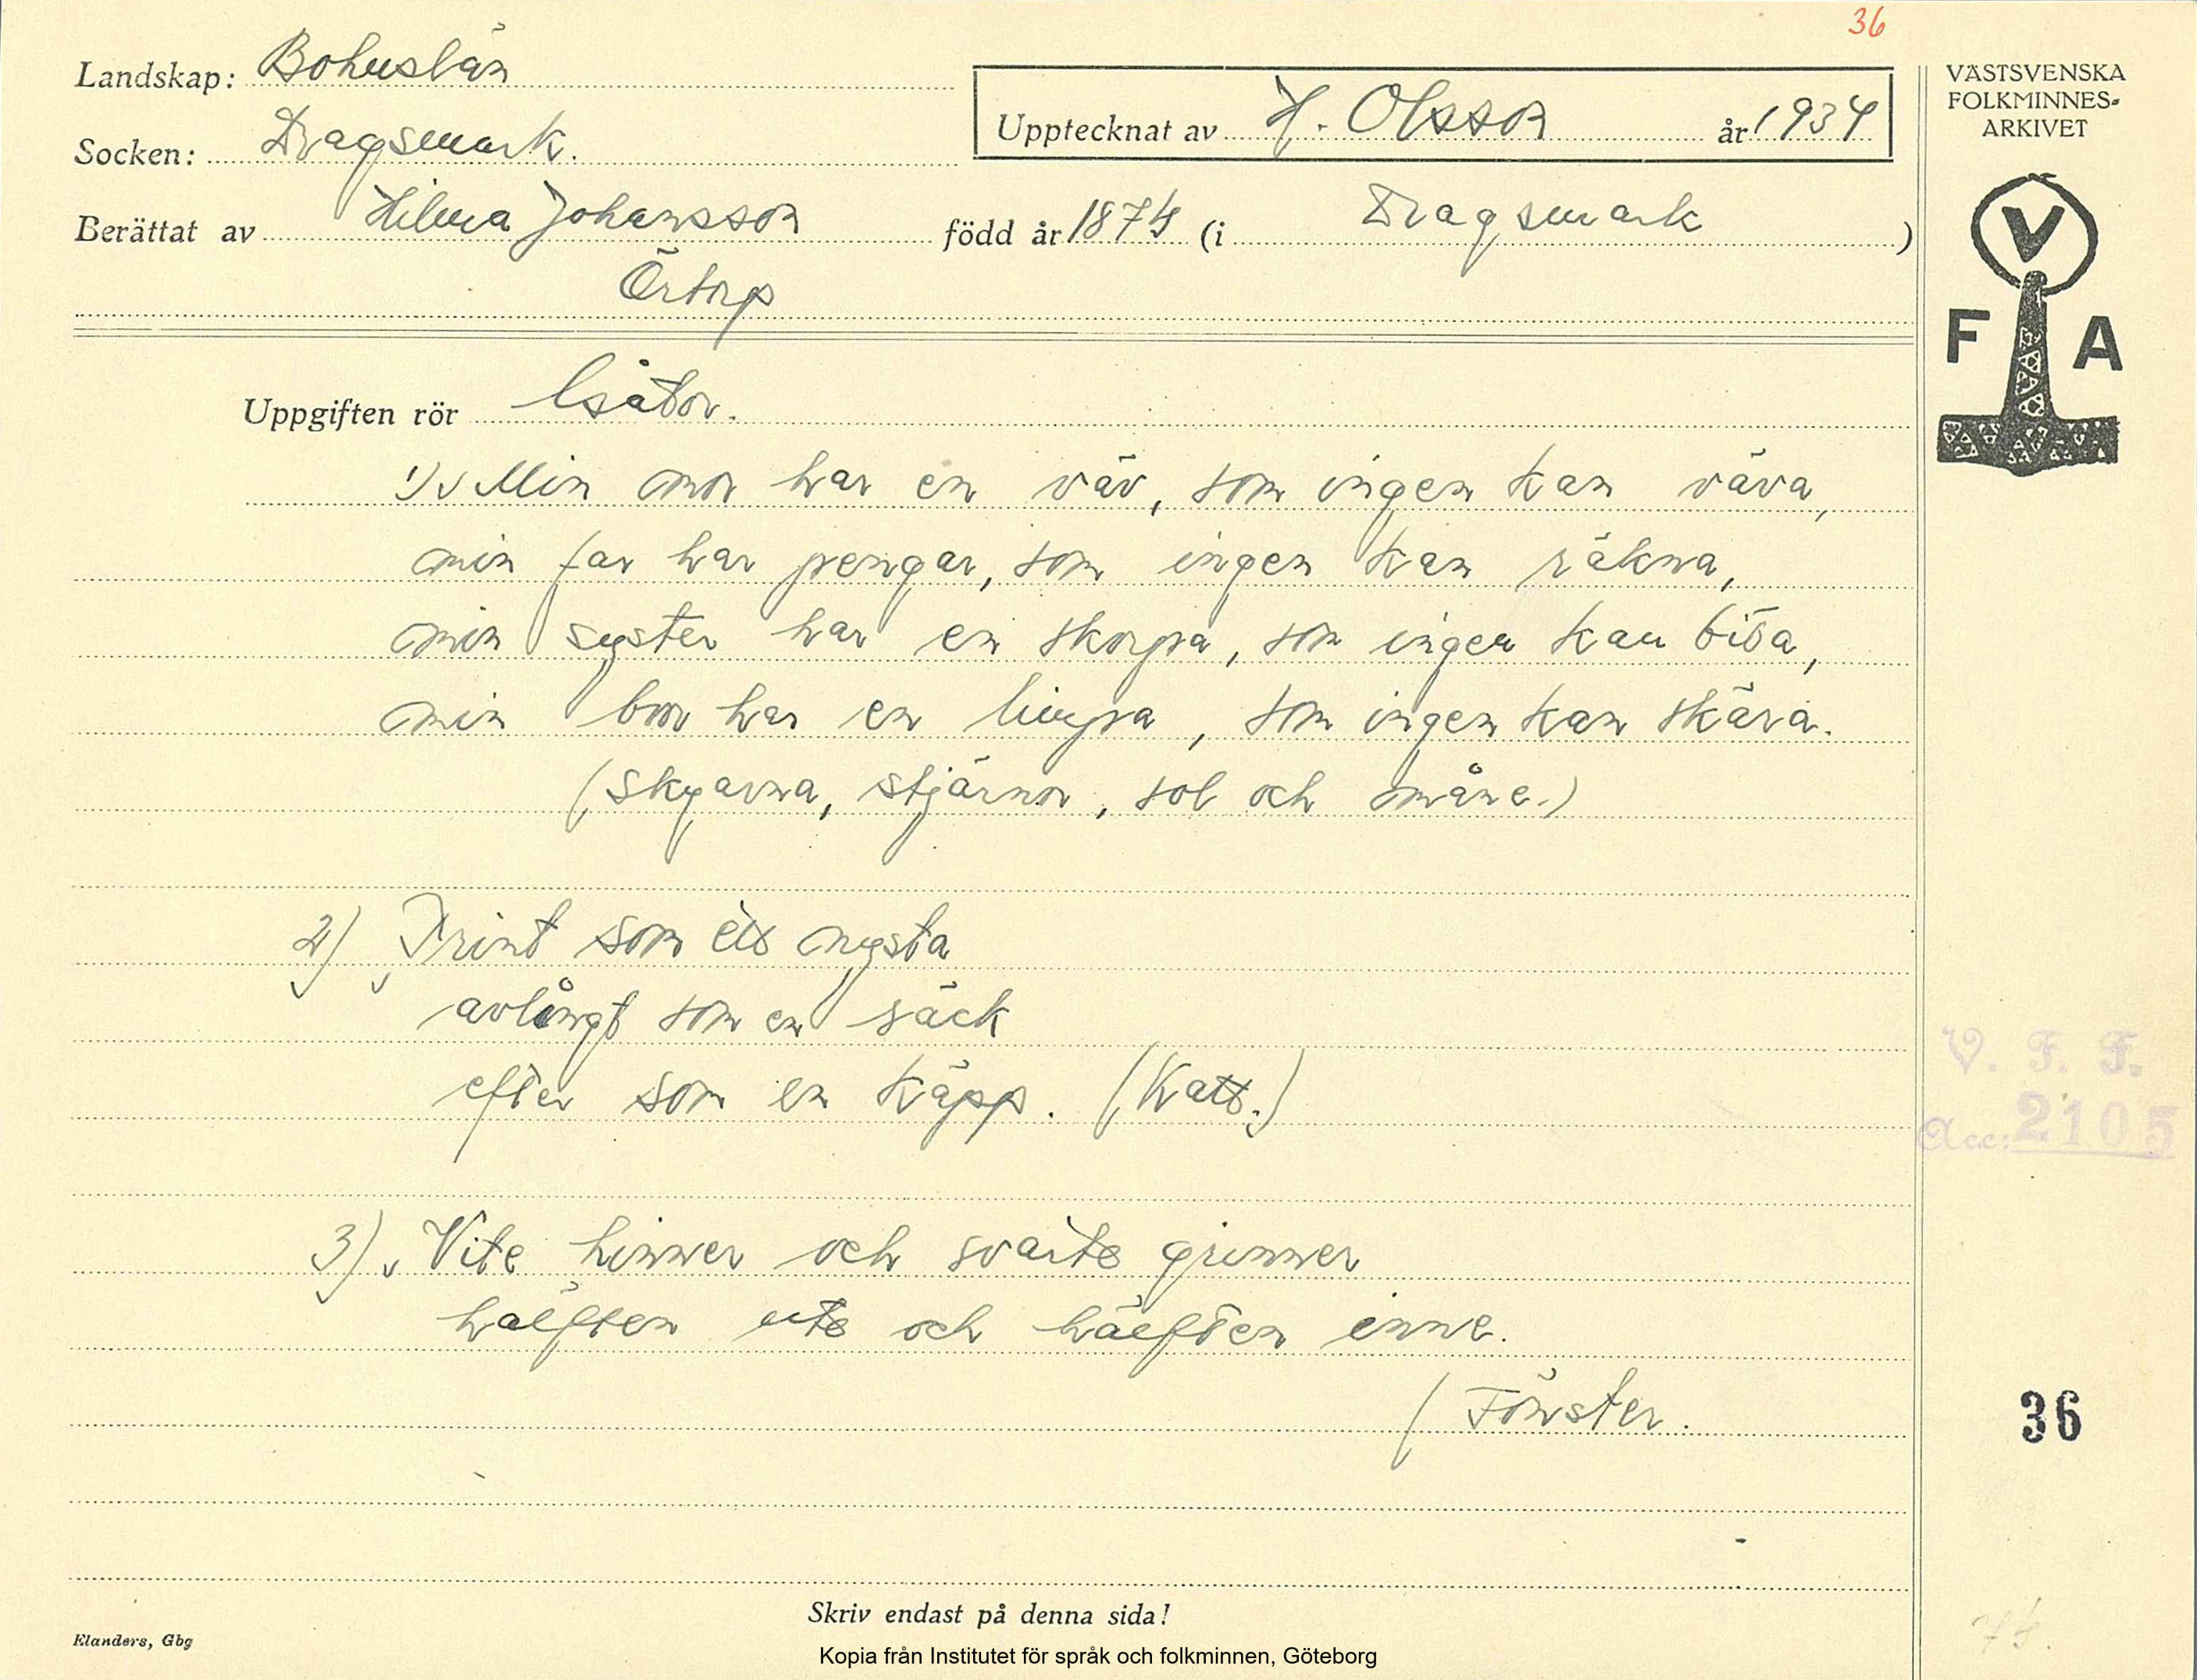 36
Landskap: Bohuslän
Socken: Dragsmark.
Upptecknat av H. Olsson år 1934
VÄSTSVENSKA
FOLKMINNES-
ARKIVET
Berättat av Hilma Johansson född år 1874 (i Dragsmark)
Örtorp
V
F A
Uppgiften rör Gåtor.
1) Min mor har en väv, som ingen kan väva,
min far har pengar, som ingen kan räkna,
min syster har en skorpa, som ingen kan bita,
min bror har en limpa, som ingen kan skära.
(Skyarna, stjärnor, sol och måne.)
2) Trint som ett nysta
avlångt som en säck
efter som en käpp. (Katt.)
3) Vite hinner och svarte grinner
hälften ute och hälften inne.
(Fönster.
V. F. F.
Acc: 2105
36
Skriv endast på denna sida!
Elanders, Gbg
Kopia från Institutet för språk och folkminnen, Göteborg